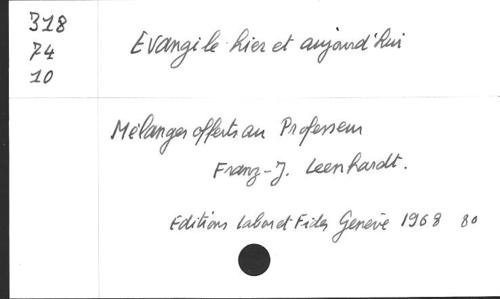 318
74
10
Evangile hier et aujourd'hui
Mélanges offerts au Professeur
Franz-J. Leenhardt.
Editions Labor et Fides Genève 1968 80